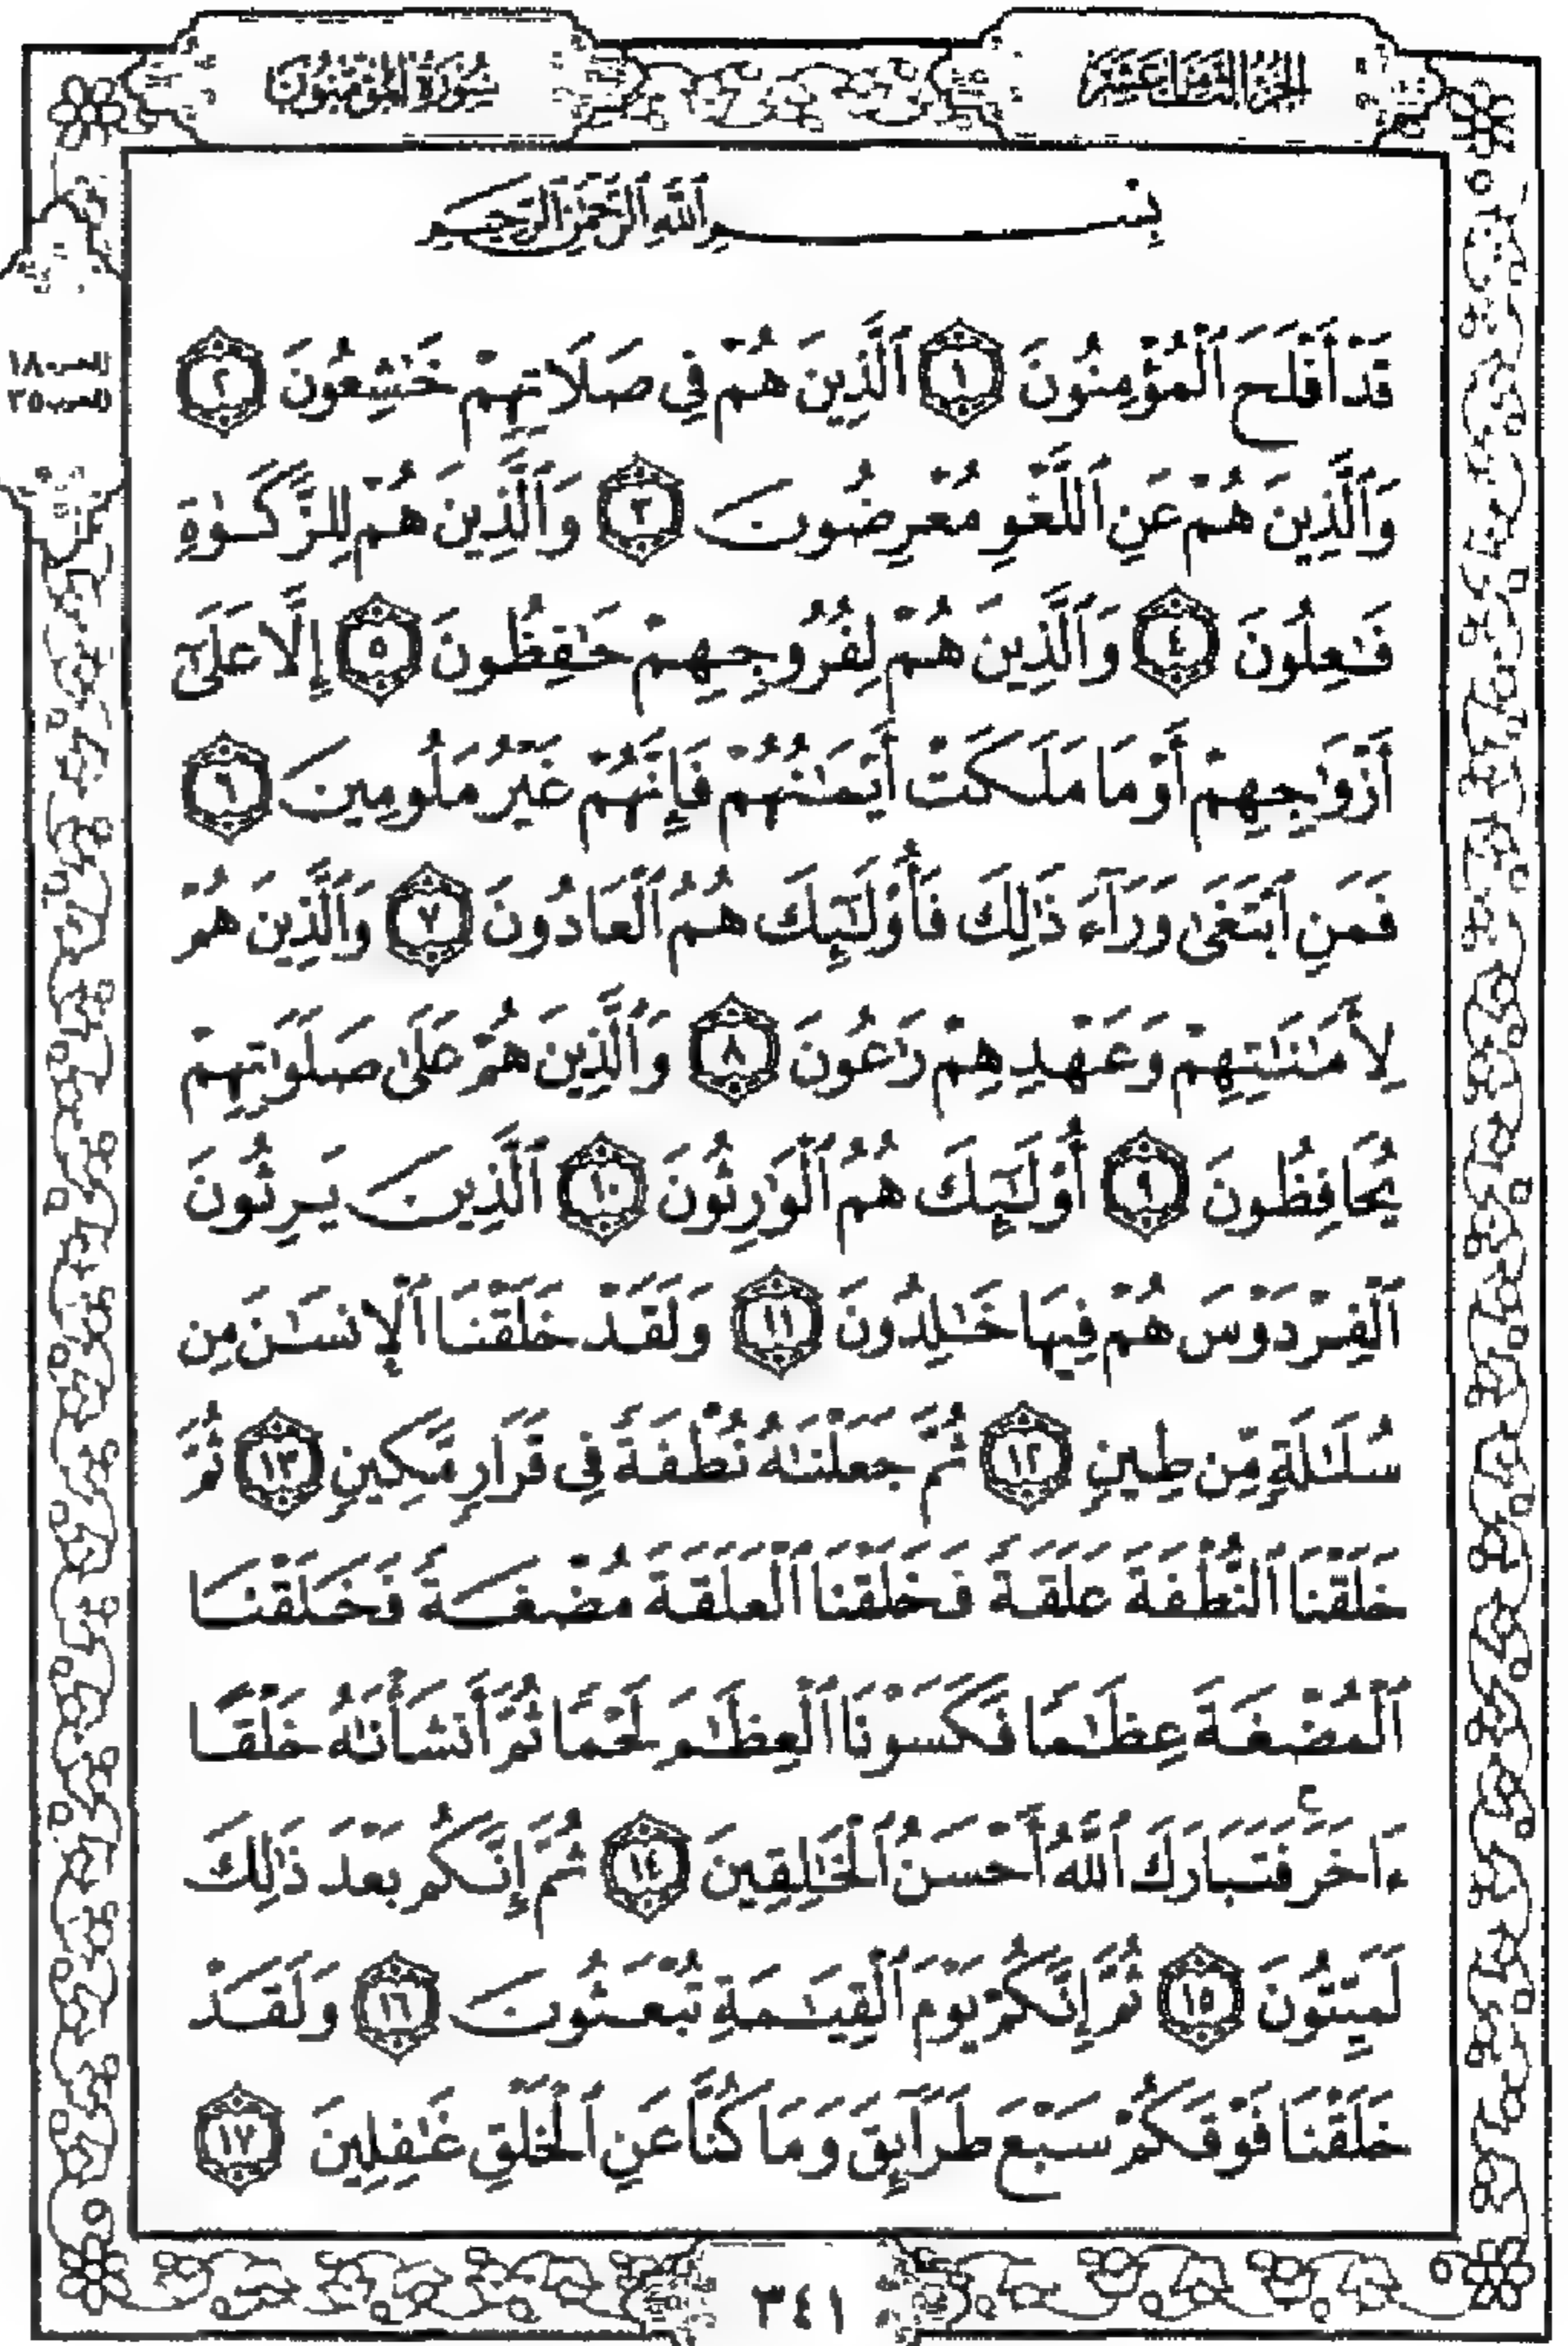 الجزء الثامن عشر
سورة المؤمنون
بِسْمِ ٱللَّهِ ٱلرَّحْمَٰنِ ٱلرَّحِيمِ
الجزء ١٨
الحزب ٣٥
قَدْ أَفْلَحَ ٱلْمُؤْمِنُونَ ١ ٱلَّذِينَ هُمْ فِي صَلَاتِهِمْ خَٰشِعُونَ ٢
وَٱلَّذِينَ هُمْ عَنِ ٱللَّغْوِ مُعْرِضُونَ ٣ وَٱلَّذِينَ هُمْ لِلزَّكَوٰةِ
فَٰعِلُونَ ٤ وَٱلَّذِينَ هُمْ لِفُرُوجِهِمْ حَٰفِظُونَ ٥ إِلَّا عَلَىٰٓ
أَزْوَٰجِهِمْ أَوْ مَا مَلَكَتْ أَيْمَٰنُهُمْ فَإِنَّهُمْ غَيْرُ مَلُومِينَ ٦
فَمَنِ ٱبْتَغَىٰ وَرَآءَ ذَٰلِكَ فَأُو۟لَٰٓئِكَ هُمُ ٱلْعَادُونَ ٧ وَٱلَّذِينَ هُمْ
لِأَمَٰنَٰتِهِمْ وَعَهْدِهِمْ رَٰعُونَ ٨ وَٱلَّذِينَ هُمْ عَلَىٰ صَلَوَٰتِهِمْ
يُحَافِظُونَ ٩ أُو۟لَٰٓئِكَ هُمُ ٱلْوَٰرِثُونَ ١٠ ٱلَّذِينَ يَرِثُونَ
ٱلْفِرْدَوْسَ هُمْ فِيهَا خَٰلِدُونَ ١١ وَلَقَدْ خَلَقْنَا ٱلْإِنسَٰنَ مِن
سُلَٰلَةٍ مِّن طِينٍ ١٢ ثُمَّ جَعَلْنَٰهُ نُطْفَةً فِي قَرَارٍ مَّكِينٍ ١٣ ثُمَّ
خَلَقْنَا ٱلنُّطْفَةَ عَلَقَةً فَخَلَقْنَا ٱلْعَلَقَةَ مُضْغَةً فَخَلَقْنَا
ٱلْمُضْغَةَ عِظَٰمًا فَكَسَوْنَا ٱلْعِظَٰمَ لَحْمًا ثُمَّ أَنشَأْنَٰهُ خَلْقًا
ءَاخَرَ ۚ فَتَبَارَكَ ٱللَّهُ أَحْسَنُ ٱلْخَٰلِقِينَ ١٤ ثُمَّ إِنَّكُم بَعْدَ ذَٰلِكَ
لَمَيِّتُونَ ١٥ ثُمَّ إِنَّكُمْ يَوْمَ ٱلْقِيَٰمَةِ تُبْعَثُونَ ١٦ وَلَقَدْ
خَلَقْنَا فَوْقَكُمْ سَبْعَ طَرَآئِقَ وَمَا كُنَّا عَنِ ٱلْخَلْقِ غَٰفِلِينَ ١٧
٣٤١